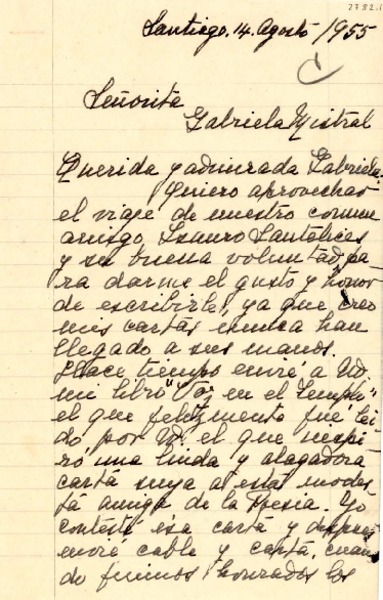 2782.1
Santiago. 14. Agosto /1955
Señorita
Gabriela Mistral
Querida y admirada Gabriela.
Quiero aprovechar
el viaje de nuestro comun
amigo Isauro Santelices
y su buena voluntad, pa
ra darme el gusto y honor
de escribirle, ya que creo
mis cartas nunca han
llegado a sus manos.
Hace tiempo envié a Ud
mi libro "Voz en el Templo"
el que felizmente fué leí
do por Ud. el que inspi
ró una linda y alagadora
carta suya at esta modes
ta amiga de la Poesia. Yo
contesté esa carta y despues
envie cable y carta, cuan
do fuimos honrados los